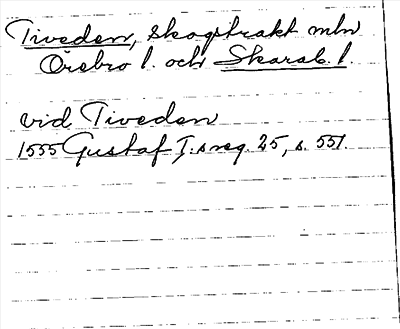 Tiveden, skogstrakt mln
Örebro l. och Skarab. l.
vid Tiveden
1555 Gustaf I:s reg. 25, s. 551.